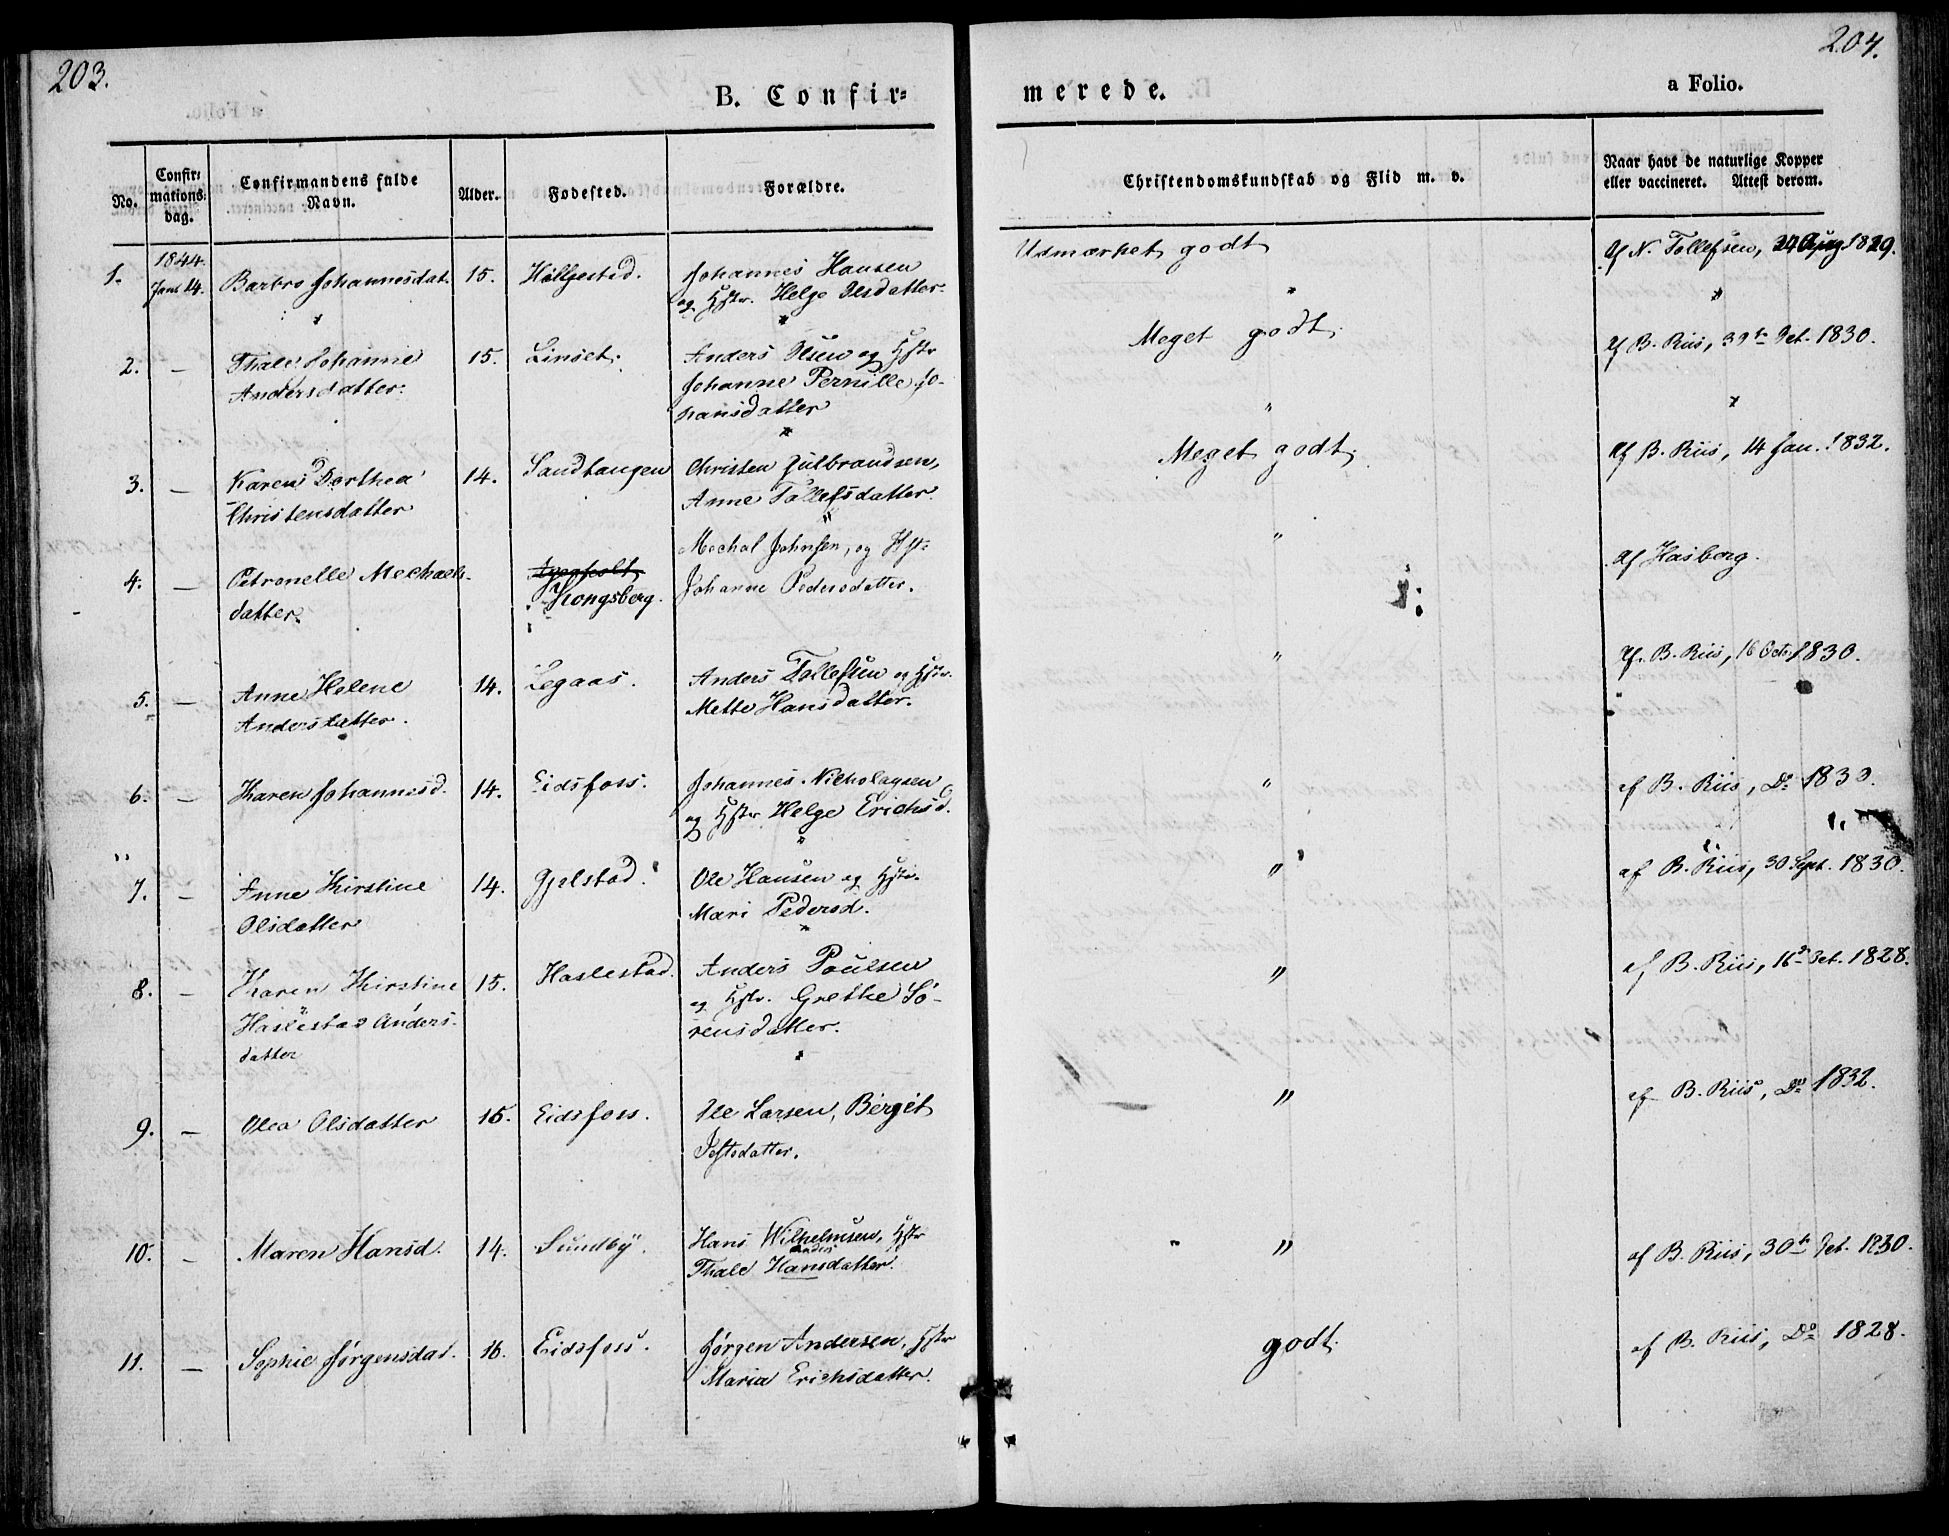 203.
B. Confir=
No.
Confir=
mations=
dag.
Confirmandens fulde
Navn.
Alder.
Fødested.
Forældre.
1844.
1. Janr 14. Barbro Johannesdat. 15. Hillestad. Johannes Hansen
og Hstr. Helge Olsdatter.
2. — Thale Johanne 15. Linset. Anders Olsen og Hstr
Andersdatter. Johanne Pernille Jo-
hansdatter
3. — Karen Dorthea 14. Sandhaugen Christen Gulbrandsen,
Christensdatter Anne Tollefsdatter.
Mechal Johnsen, og Hst:
4. — Petronelle Mechaels- Kongsberg. Johanne Pedersdatter.
datter.
5. — Anne Helene 14. Legaas. Anders Tollefsen og Hstr.
Andersdatter. Mette Hansdatter.
6. — Karen Johannesd. 14. Eidsfoss. Johannes Nicholaysen
og Hstr Helge Erichsd.
7. — Anne Kirstine 14. Gjelstad. Ole Hansen og Hstr.
Olsdatter Mari Pedersd.
8. — Karen Kirstine 15. Haslestad. Anders Poulsen
Haslestad Anders- og Hstr. Grethe Sö-
datter rensdatter.
9. — Olea Olsdatter 15. Eidsfoss. Ole Larsen, Bergit
10. — Maren Hansd. 14. Sundby. Hans Wilhelmsen, Hstr
Anders
Thale Hansdatter.
11. — Sophie Jørgensdat. 16. Eidsfoss. Jørgen Andersen, Hstr
Maria Erichsdatter.
204.
merede.
a Folio.
Christendomskundskab og Flid m. v.
Naar havt de naturlige Kopper
eller vaccineret. Attest derom.
Udmærket godt Af N. Tollefsen, 1829.
"
Meget godt. Af B. Riis, 30te Oct. 1830.
"
Meget godt. Af B. Riis, 14 Jan. 1832.
" Af Hasberg.
" Af B. Riis, 16 Octo 1830.
" af B. Riis, Do 1830.
" af B. Riis, 30 Sept. 1830.
" af B. Riis, 16 Oct. 1828.
" af B. Riis, Do 1832.
" af B. Riis, 30te Oct. 1830.
godt. af B. Riis, Do 1828.